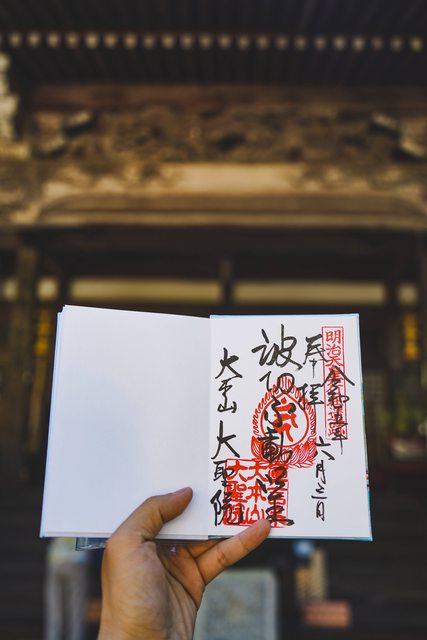 明治天皇
奉拝
令和五年
六月三日
波切不動明王
大本山 大聖院
大本山
大聖院